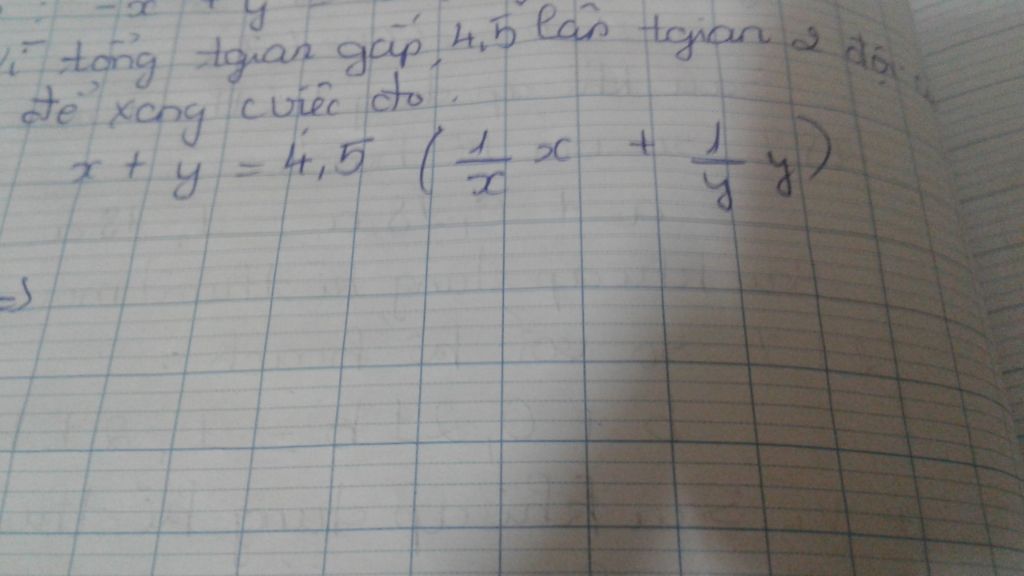 x + y
tổng tgian gấp 4,5 lần tgian 2 đội
để xong cviệc đó.
x + y = 4,5 ( 1/x x + 1/y y )
=>